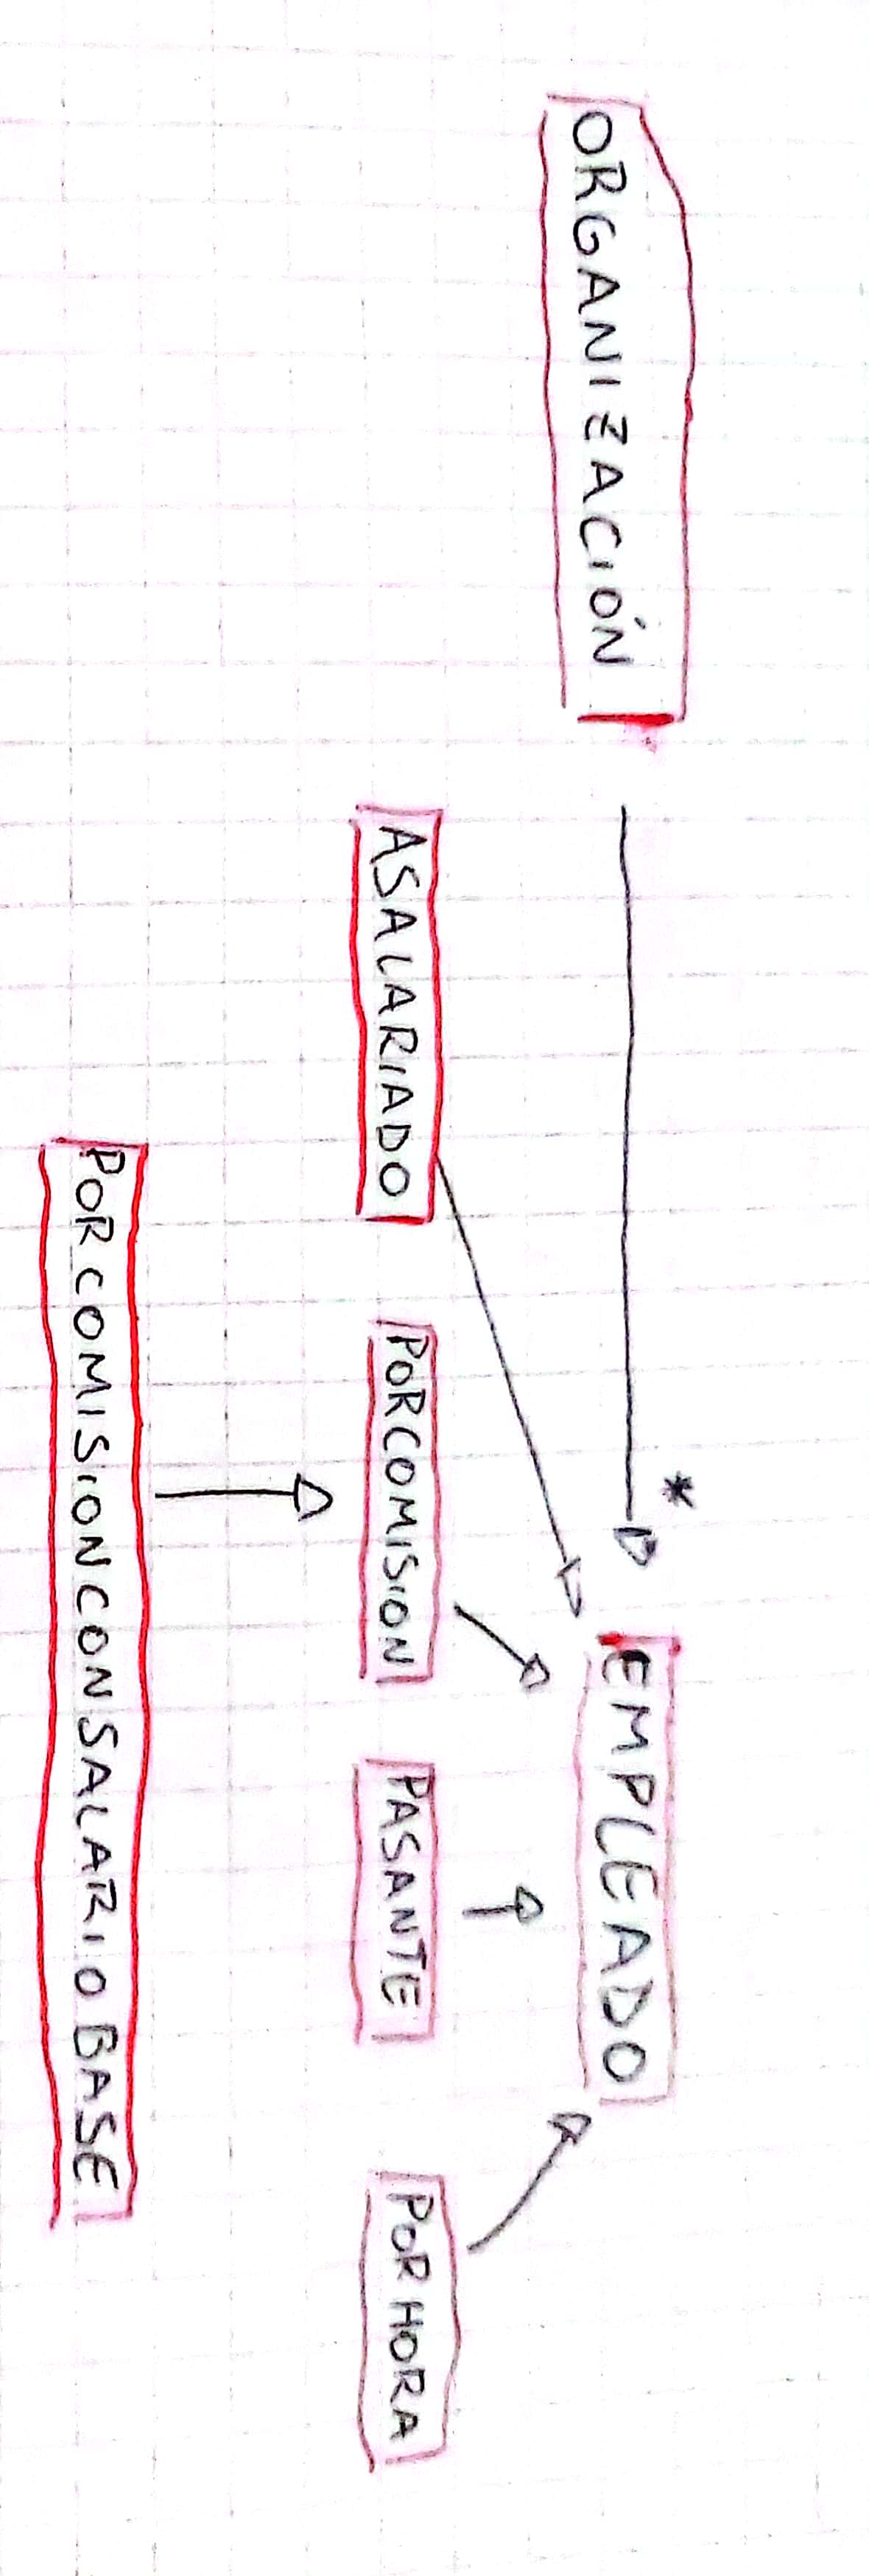 ORGANIZACIÓN
*
EMPLEADO
ASALARIADO
PORCOMISION
PASANTE
POR HORA
PORCOMISIONCONSALARIOBASE